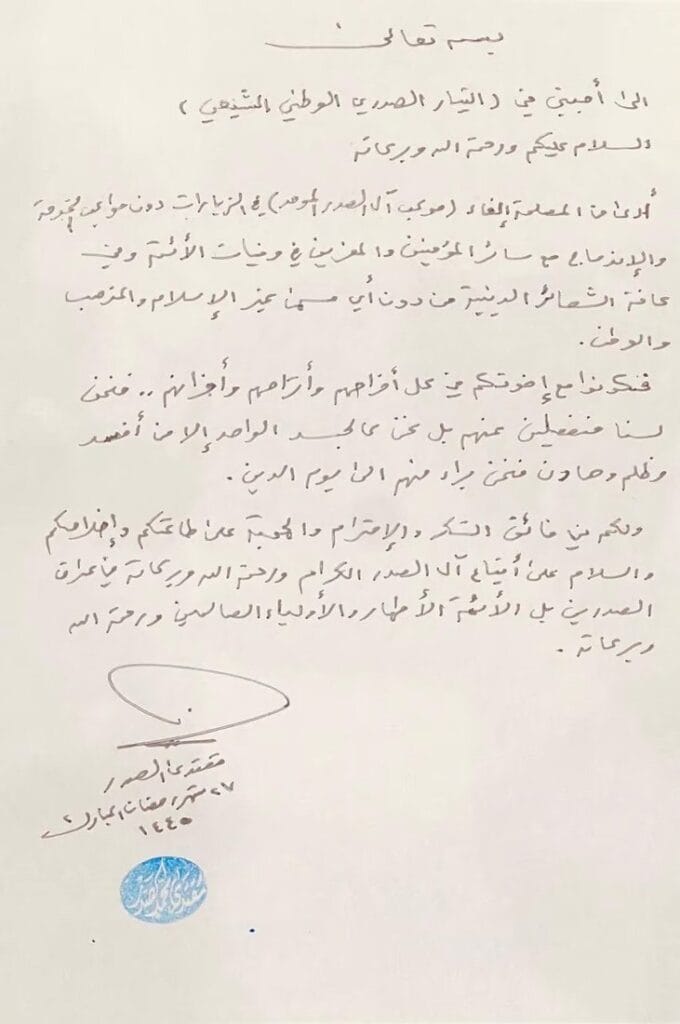 بسمه تعالى
الى أحبتي في (التيار الصدري الوطني الشيعي)
السلام عليكم ورحمة الله وبركاته
أرى من المصلحة إلغاء (موكب آل الصدر الموحد) في الزيارات دون مواكبي
والإندماج مع سائر المؤمنين والمعزين في وفيات الأئمة وفي
كافة الشعائر الدينية من دون أي مسمى غير الإسلام والمذهب
والوطن.
فتكونوا مع إخوتكم في كل أفراحهم وأتراحهم وأحزانهم .. فنحن
لسنا منفصلين عنهم بل نحن كالجسد الواحد إلا من أفسد
وظلم وهادن فنحن براء منهم الى يوم الدين.
ولكم مني فائق الشكر والإحترام والمحبة على طاعتكم وإخلاصكم
والسلام على أتباع آل الصدر الكرام ورحمة الله وبركاته في عراق
الصدرين بل الأئمة الأطهار والأولياء الصالحين ورحمة الله
وبركاته.
مقتدى الصدر
٢٧ شهر رمضان المبارك
١٤٤٥
مقتدى محمد الصدر